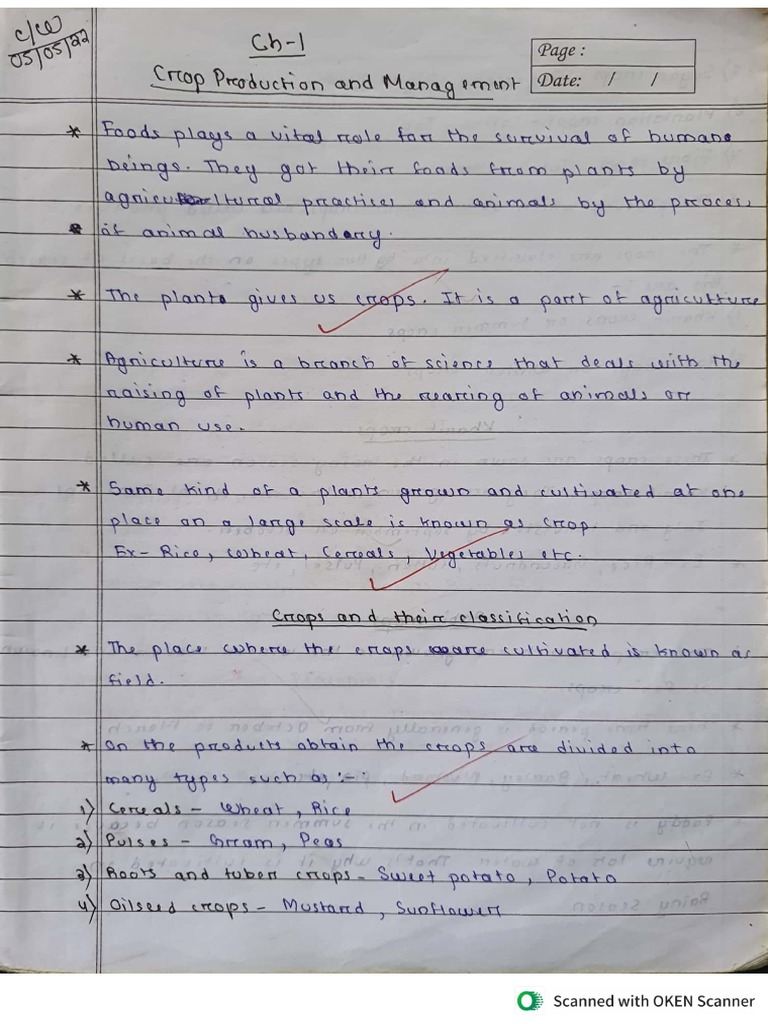 C/W
05/05/22
Ch-1
Page :
Crop Production and Management
Date: / /
* Foods plays a vital role for the survival of humans
beings. They got their foods from plants by
agricultural practices and animals by the process
of animal husbandary.
* The plants gives us crops. It is a part of agriculture
* Agriculture is a branch of science that deals with the
raising of plants and the rearing of animals or
human use.
* Same kind of a plants grown and cultivated at one
place on a large scale is known as crop.
Ex- Rice, Wheat, Cereals, Vegetables etc.
Crops and their classification
* The place where the crops are cultivated is known as
field.
* On the products obtain the crops are divided into
many types such as :-
1) Cereals - Wheat, Rice
2) Pulses - Gram, Peas
3) Roots and tuber crops - Sweet potato, Potato
4) Oilseed crops - Mustard, Sunflower
Scanned with OKEN Scanner